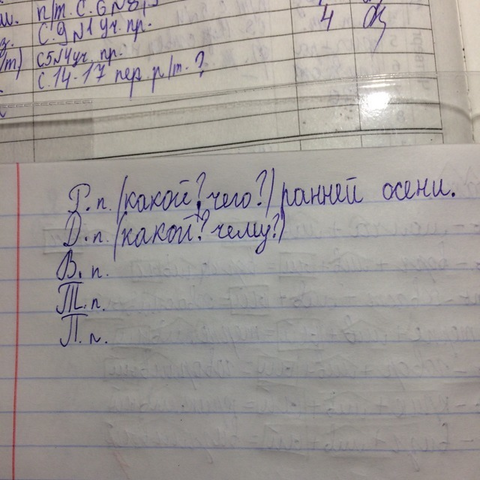 п/т. С. 6 №8
С. 9 №1 уч. пр.
4
т) с5№4 уч. пр.
С. 14-17 пер. р/т. ?
Р. п. (какой? чего?) ранней осени.
Д. п. (какой? чему?)
В. п.
Т. п.
П. п.